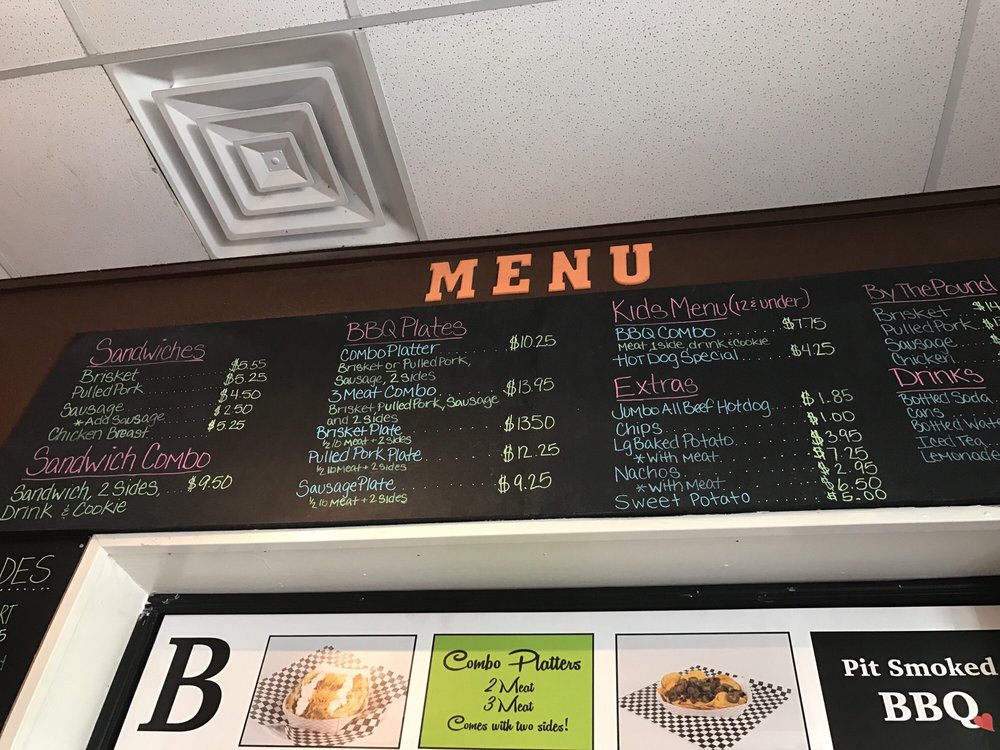 MENU
Sandwiches
Brisket $5.55
Pulled Pork $5.25
Sausage $4.50
* Add Sausage $2.50
Chicken Breast $5.25
Sandwich Combo
Sandwich, 2 Sides, $9.50
Drink & Cookie
BBQ Plates
Combo Platter $10.25
Brisket or Pulled Pork,
Sausage, 2 sides
3 Meat Combo $13.95
Brisket Pulled Pork, Sausage
and 2 sides
Brisket Plate $13.50
1/2 lb Meat + 2 Sides
Pulled Pork Plate $12.25
1/2 lb Meat + 2 Sides
Sausage Plate $9.25
1/2 lb Meat + 2 Sides
Kids Menu (12 & under)
BBQ Combo $7.75
Meat 1 side, drink & cookie
Hot Dog Special $4.25
Extras
Jumbo All Beef Hotdog $1.85
Chips $1.00
Lg Baked Potato $3.95
* with Meat $7.25
Nachos $2.95
* with Meat $6.50
Sweet Potato $5.00
By The Pound
Brisket $14
Pulled Pork
Sausage
Chicken
Drinks
Bottled Soda
Cans
Bottled Wat
Iced Tea
Lemonade
DES
RT
B
Combo Platters
2 Meat
3 Meat
Comes with two sides!
Pit Smoked
BBQ